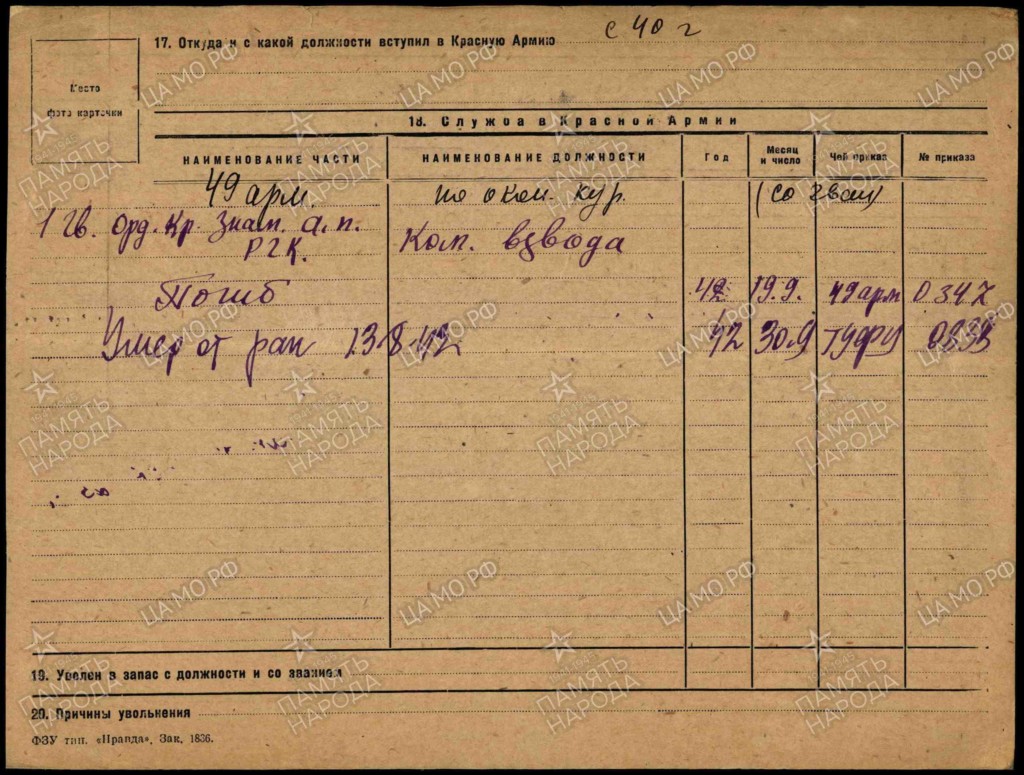 17. Откуда и с какой должности вступил в Красную Армию с 40 г
Место
фото карточки
18. Служба в Красной Армии
НАИМЕНОВАНИЕ ЧАСТИ НАИМЕНОВАНИЕ ДОЛЖНОСТИ Год Месяц и число Чей приказ № приказа
49 арм. по окон. кур. (со зван)
1 Гв. орд. Кр. Знам. а. п. РГК. Ком. взвода
Погиб 42 19.9. 49 арм 0347
Умер от ран 13-8-42 42 30.9 ГУФУ
19. Уволен в запас с должности и со званием
20. Причины увольнения
ФЗУ тип. «Правда». Зак. 1836.
ЦАМО.РФ
ПАМЯТЬ НАРОДА